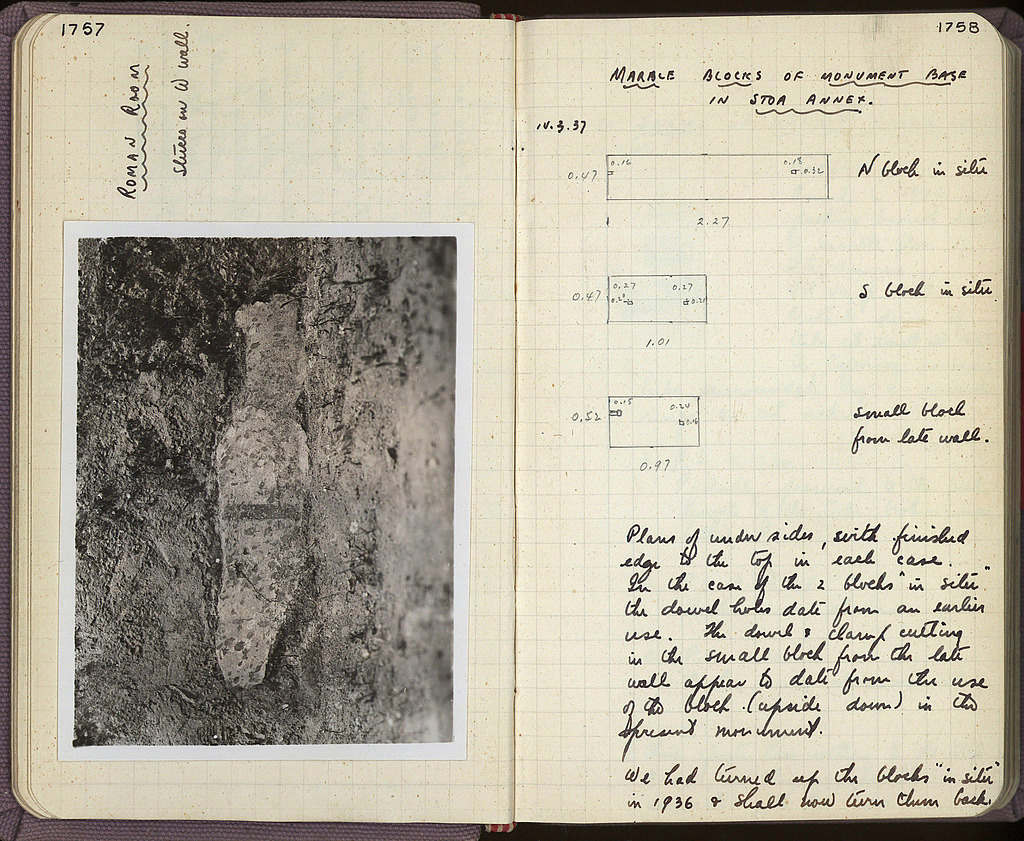 1757
ROMAN ROOM
Stucco on W wall.
1758
MARBLE BLOCKS OF MONUMENT BASE
IN STOA ANNEX.
IV.3.37
0.16 0.18
0.47 0.32 N block in situ
2.27
0.27 0.27
0.47 0.20 0.21 S block in situ
1.01
0.15 0.24
0.52 0.16 small block
from late wall.
0.97
Plans of under sides, with finished
edge to the top in each case.
In the case of the 2 blocks "in situ"
the dowel holes date from an earlier
use. The dowel & clamp cutting
in the small block from the late
wall appear to date from the use
of the block (upside down) in the
present monument.
We had turned up the blocks "in situ"
in 1936 & shall now turn them back.